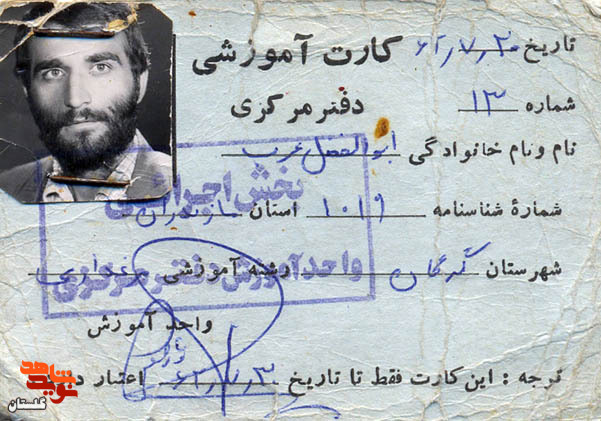 کارت آموزشی
تاریخ
دفتر مرکزی
شماره ۱۳
نام و نام خانوادگی ابوالفضل عرب
شمارهٔ شناسنامه ۱۰۱۹ استان مازندران
شهرستان گرگان رشته آموزشی
واحد آموزش
توجه : این کارت فقط تا تاریخ اعتبار دارد
بخش اجرائی
واحد آموزش دفتر مرکزی
نوید شاهد
گلستان